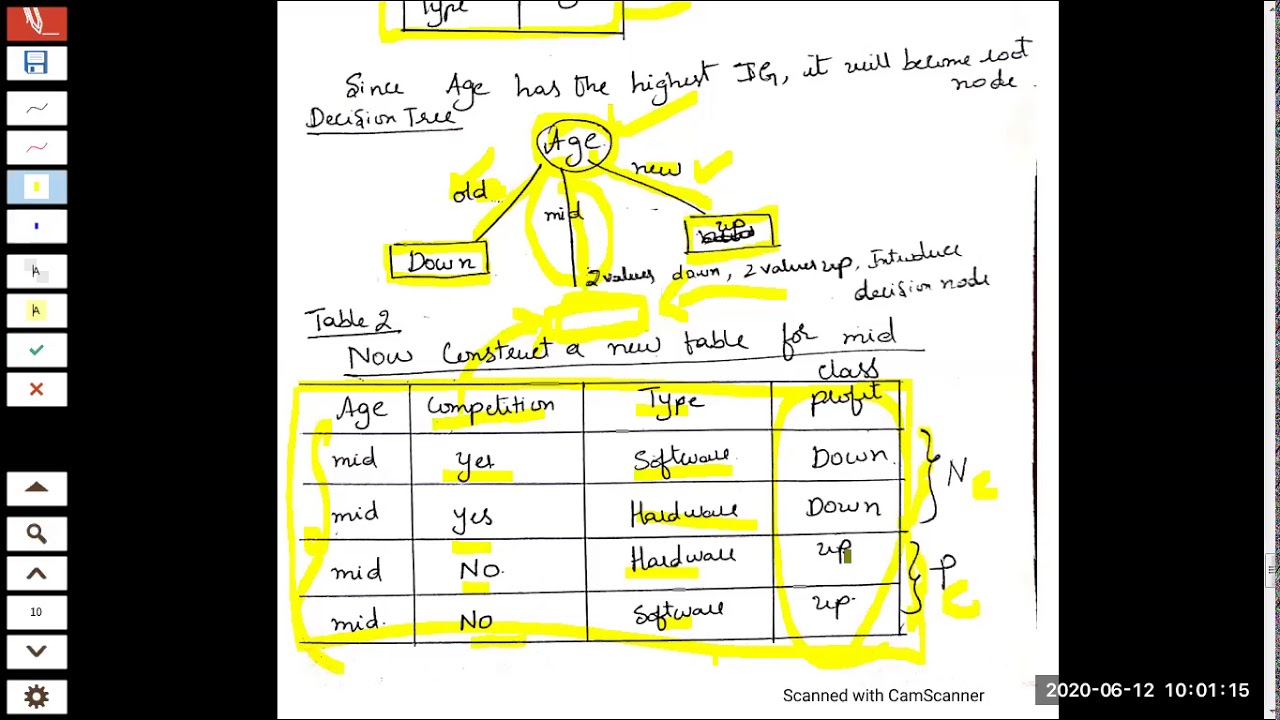 Type
Since Age has the highest IG, it will become root
node.
Decision Tree
Age
old
mid
new
up
Down
2 values down, 2 values up, Introduce
decision node
Table 2
Now Construct a new table for mid
class
Age Competition Type profit
mid Yes Software Down
mid yes Hardware Down
N
mid NO. Hardware up
P
mid. NO Software up.
A
A
10
Scanned with CamScanner
2020-06-12 10:01:15